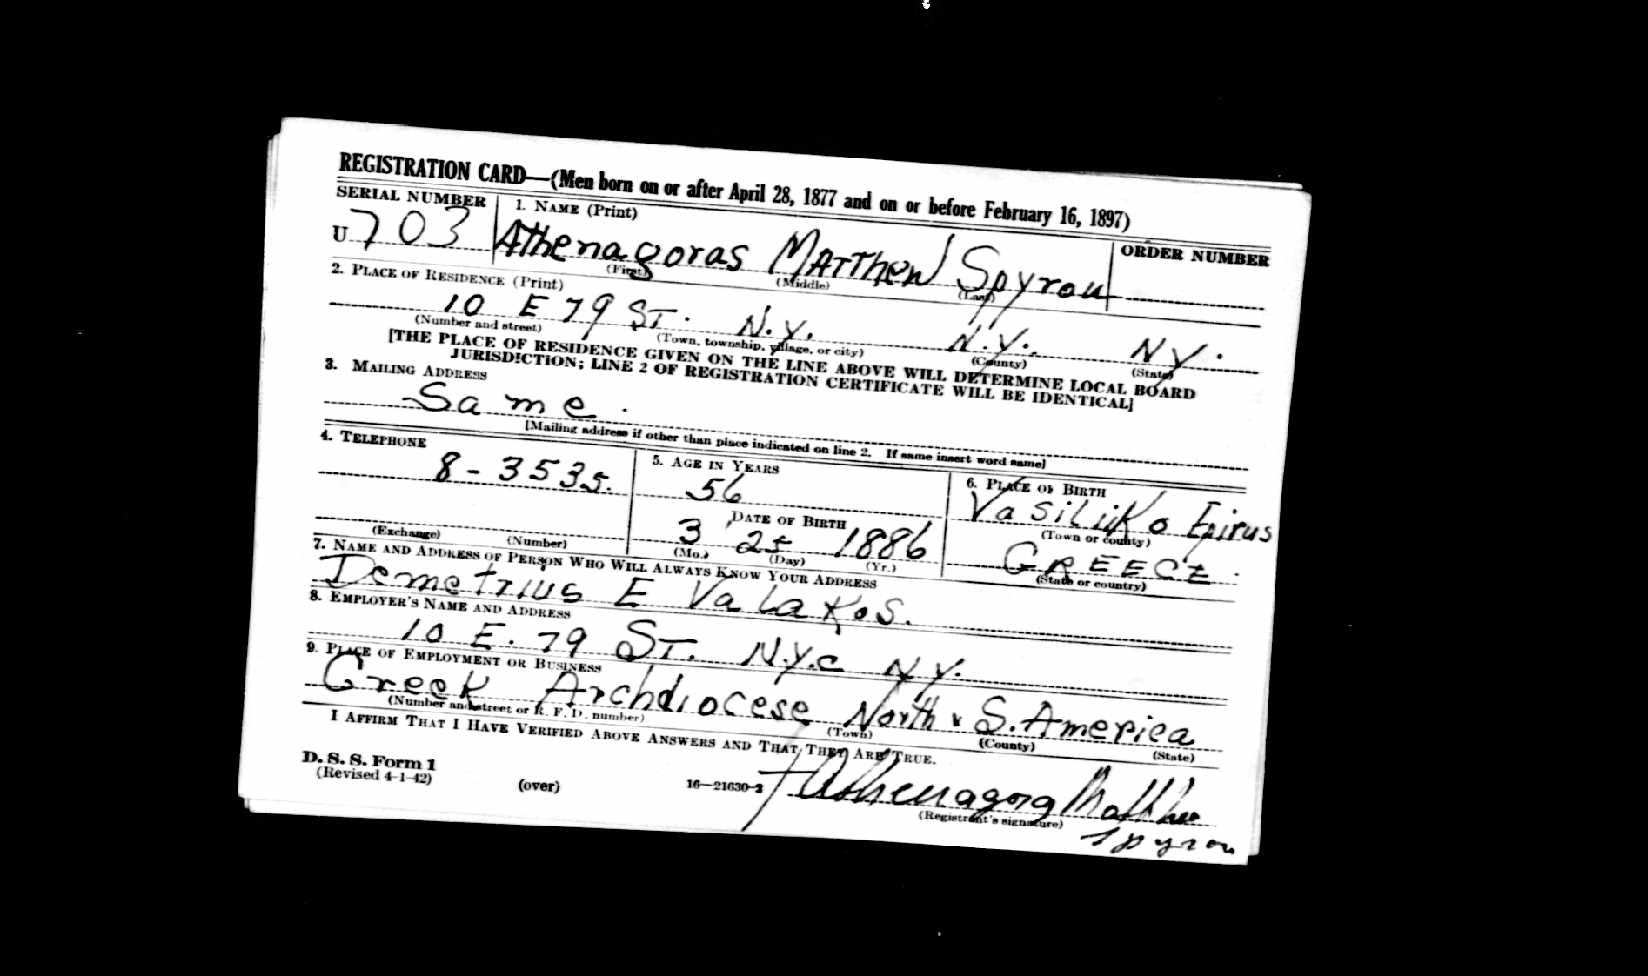 REGISTRATION CARD—(Men born on or after April 28, 1877 and on or before February 16, 1897)
SERIAL NUMBER
1. NAME (Print)
ORDER NUMBER
U 703
Athenagoras Matthew Spyrou
(First) (Middle) (Last)
2. PLACE OF RESIDENCE (Print)
10 E 79 ST. N.Y. N.Y. NY.
(Number and street) (Town, township, village, or city) (County) (State)
[THE PLACE OF RESIDENCE GIVEN ON THE LINE ABOVE WILL DETERMINE LOCAL BOARD
JURISDICTION; LINE 2 OF REGISTRATION CERTIFICATE WILL BE IDENTICAL]
3. MAILING ADDRESS
Same.
[Mailing address if other than place indicated on line 2. If same insert word same]
4. TELEPHONE
8-3535.
(Exchange) (Number)
5. AGE IN YEARS
56
DATE OF BIRTH
3 25 1886
(Mo.) (Day) (Yr.)
6. PLACE OF BIRTH
Vasiliiko Epirus
(Town or county)
GREECE.
(State or country)
7. NAME AND ADDRESS OF PERSON WHO WILL ALWAYS KNOW YOUR ADDRESS
Demetrius E Valakos.
8. EMPLOYER'S NAME AND ADDRESS
10 E. 79 ST. N.Y.C NY.
9. PLACE OF EMPLOYMENT OR BUSINESS
Greek Archdiocese North & S. America
(Number and street or R. F. D. number) (Town) (County) (State)
I AFFIRM THAT I HAVE VERIFIED ABOVE ANSWERS AND THAT THEY ARE TRUE.
D. S. S. Form 1
(Revised 4-1-42)
(over)
16—21630-2
Athenagora Matthew
(Registrant's signature)
Spyrou